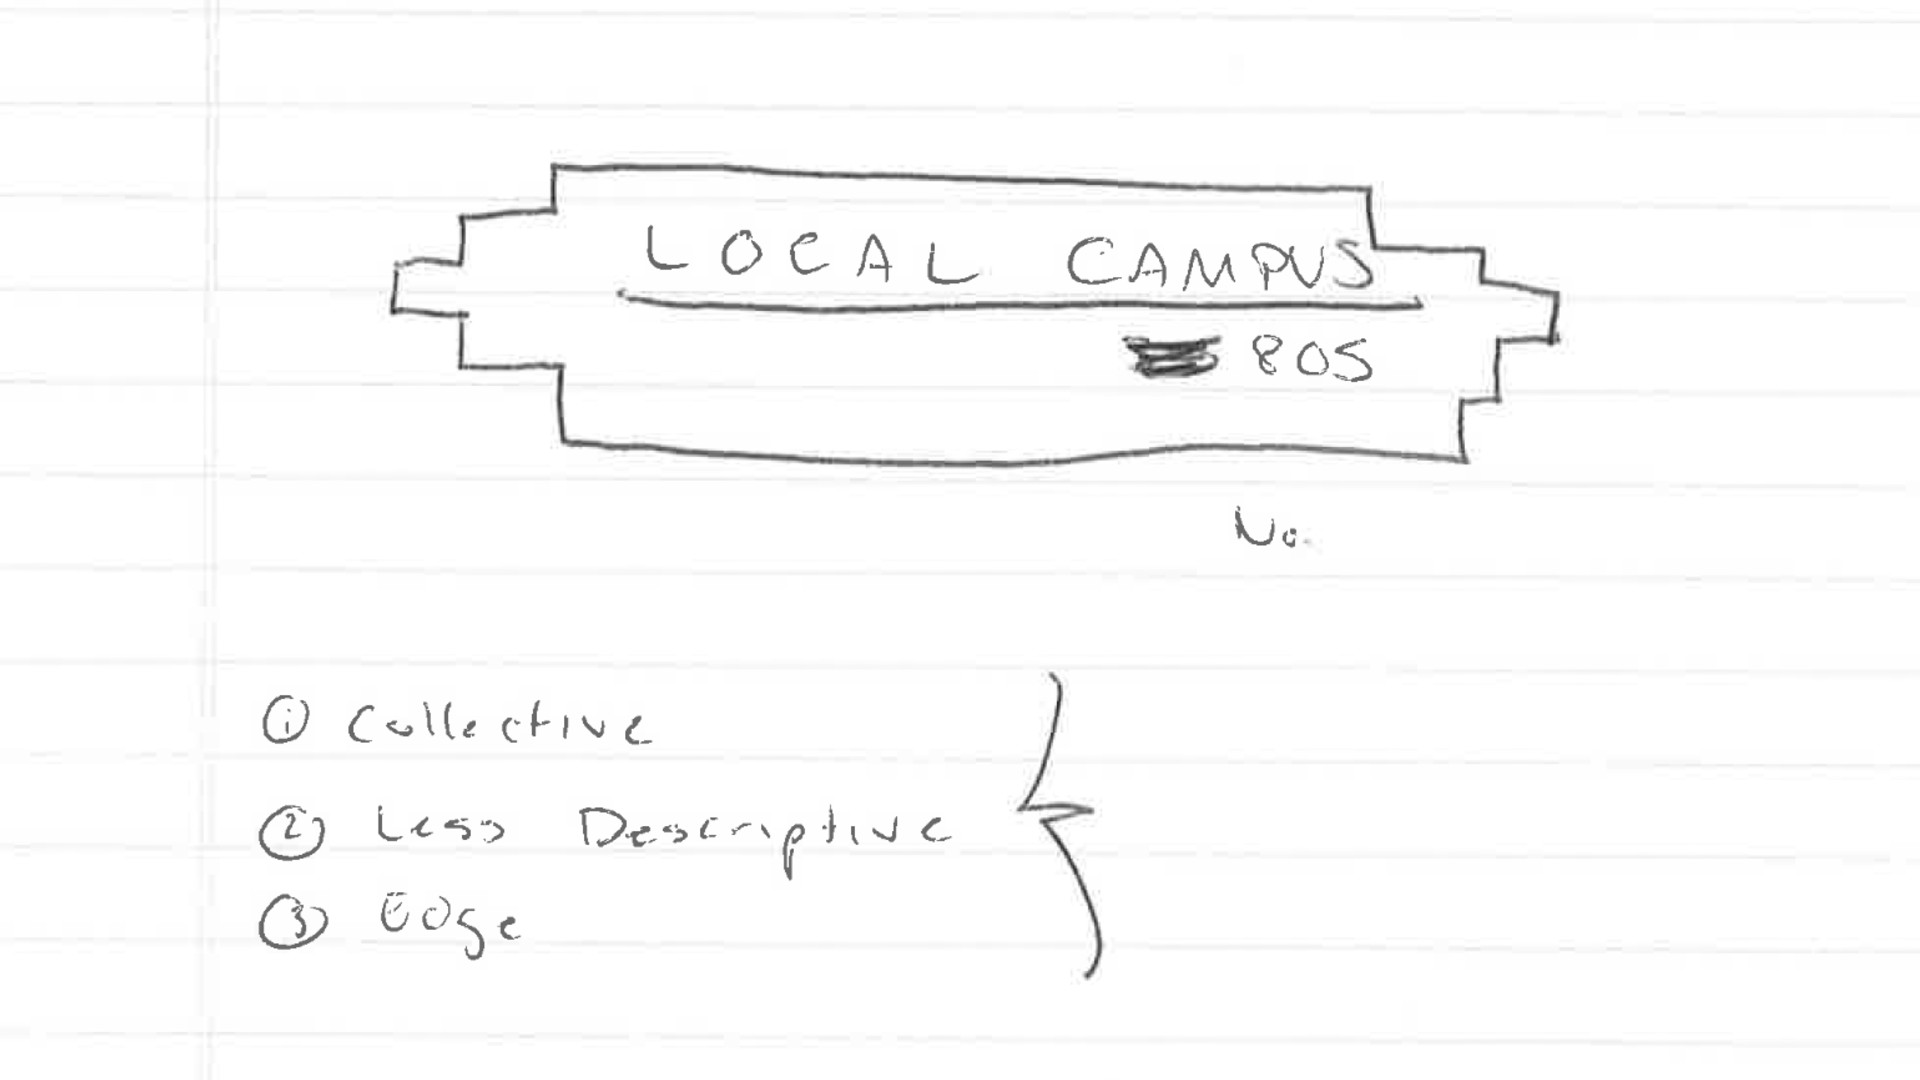 LOCAL CAMPUS
805
No.
① Collective
② Less Descriptive
③ Edge